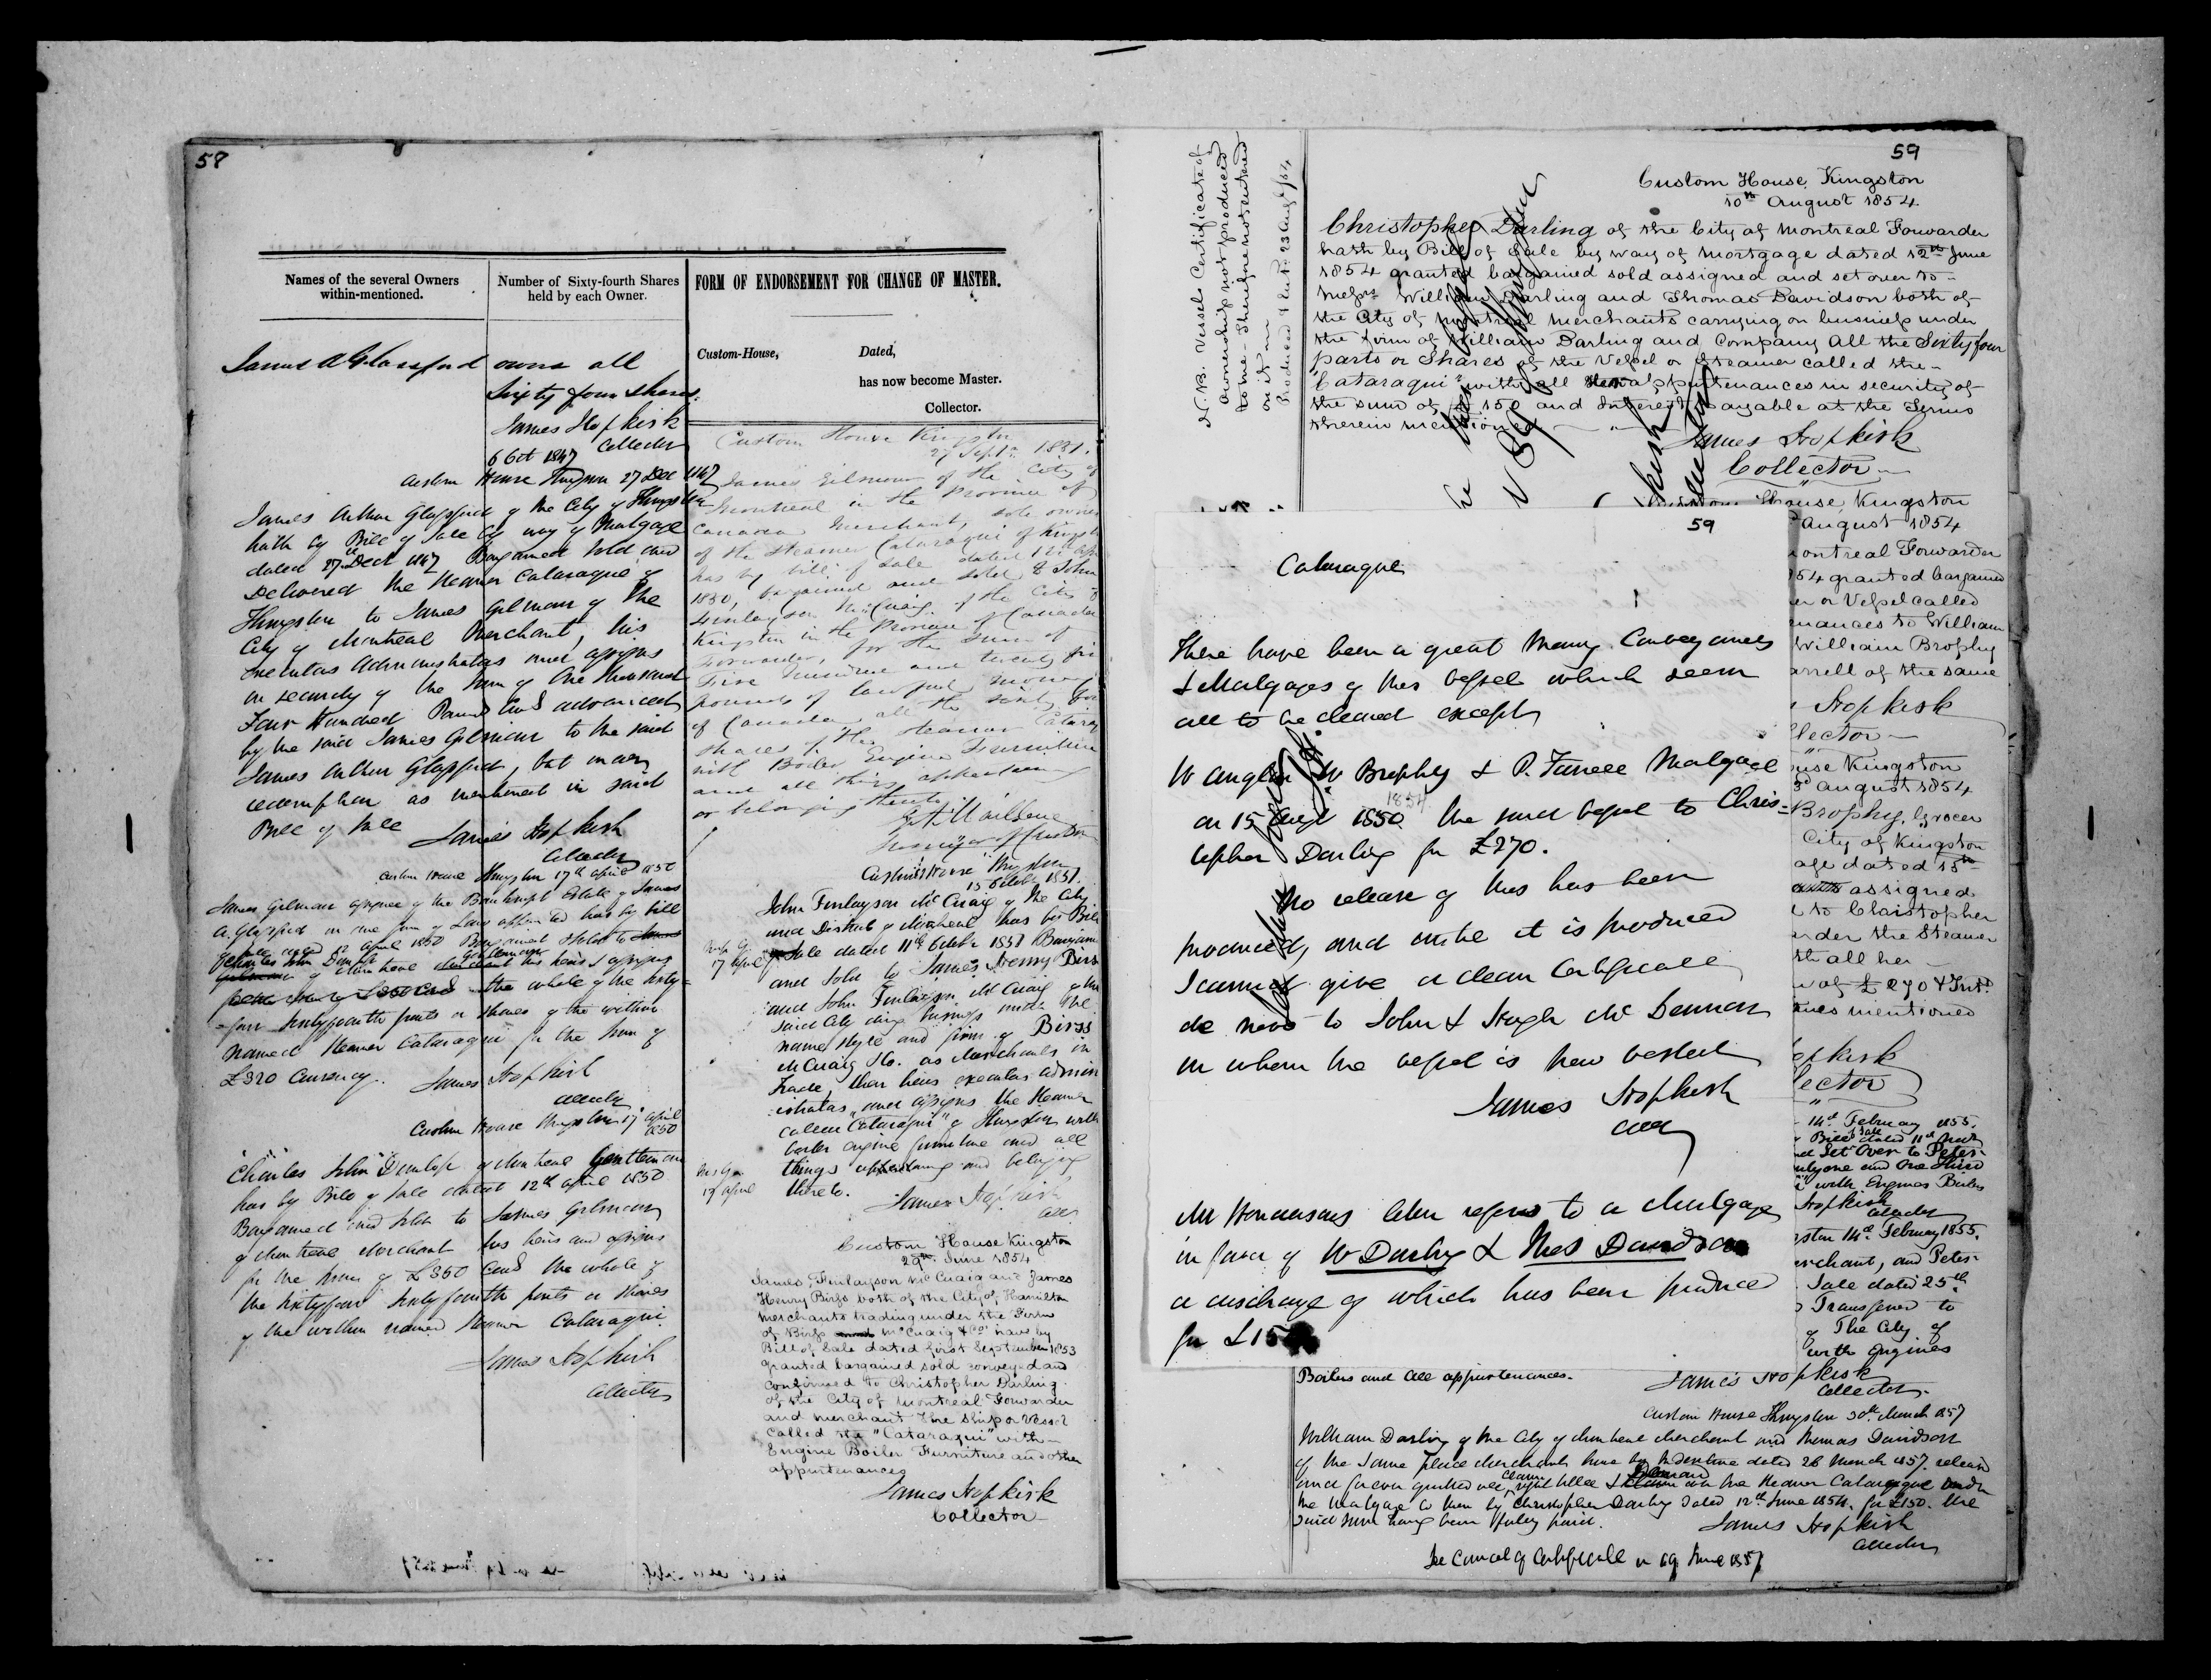 58
Names of the several Owners
within-mentioned.
Number of Sixty-fourth Shares
held by each Owner.
James A Glassford owns all
Sixty four shares.
James Hopkirk
Collector
6 Oct 1847
Custom House Kingston 27 Dec 1847
James Arthur Glassford of the City of Kingston
hath by Bill of Sale by way of Mortgage
dated 27th Decr 1847 Bargained Sold and
Delivered the Steamer Cataraqui of
Kingston to James Gilmour of the
City of Montreal Merchant, his
Executors Administrators and assigns
in security of the Sum of One thousand
Four Hundred Pounds advanced
by the said James Gilmour to the said
James Arthur Glassford, but
redemption as mentioned in said
Bill of Sale
James Hopkirk
Collector
Custom House Kingston 17th April 1850
James Gilmour assignee of the Bankrupt Estate of James
A. Glassford in due form of Law appointed has by bill
of Sale dated 12 April 1850 Bargained & Sold to
Charles John Dunlop Gentleman
of Montreal his heirs & assigns
the whole of the sixty-
four sixtyfourth parts or shares of the within
named Steamer Cataraqui for the sum of
£320 Currency.
James Hopkirk
Collector
Custom House Kingston 17 April
1850
Charles John Dunlop of Montreal Gentleman
has by Bill of Sale dated 12th April 1850
Bargained and Sold to James Gilmour
of Montreal Merchant his heirs and assigns
for the sum of £350 the whole of
the sixtyfour sixtyfourth parts or shares
of the within named Steamer Cataraqui
James Hopkirk
Collector
FORM OF ENDORSEMENT FOR CHANGE OF MASTER.
Custom-House,
Dated,
has now become Master.
Collector.
Custom House Kingston
27 Septr. 1851.
James Gilmour of the City of
Montreal in the Province of
Canada Merchant, sole owner
of the Steamer Cataraqui of Kingston
has by bill of sale dated 12th
1850, bargained and sold to John
Finlayson McCuaig of the City of
Kingston in the Province of Canada
Forwarder, for the sum of
Five hundred and twenty five
pounds of lawful money
of Canada all the sixty four
shares of the steamer
with Boiler Engine Furniture
and all things appertaining
or belonging thereto
Custom House Kingston
15 October 1851.
John Finlayson McCuaig of the City
and District of Montreal has by Bill
of Sale dated 11th October 1851 Bargained
and Sold to James Henry Birss
and John Finlayson McCuaig of the
said City doing business under the
name style and firm of Birss
McCuaig & Co. as Merchants in
Trade, their heirs executors admin
istrators and assigns the Steamer
called "Cataraqui" of Kingston with
boiler engine furniture and all
things appertaining and belonging
thereto.
James Hopkirk
Collr
17 April
17 April
Custom House Kingston
29th June 1854
James, Finlayson McCuaig and James
Henry Birss both of the City of Hamilton
Merchants trading under the Firm
of Birss McCuaig & Co have by
Bill of Sale dated first September 1853
granted bargained sold conveyed and
confirmed to Christopher Darling
of the City of Montreal Forwarder
and Merchant the Ship or Vessel
called the "Cataraqui" with
Engine Boiler Furniture and other
appurtenances
James Hopkirk
Collector
59
N.B. Vessels Certificate of
ownership not produced
to me - Therefore not entered
on it
Produced & Entd. 23 Augt /54
Custom House, Kingston
10th August 1854
Christopher Darling of the City of Montreal Forwarder
hath by Bill of Sale by way of Mortgage dated 12th June
1854 granted bargained sold assigned and set over to
Messrs William Darling and Thomas Davidson both of
the City of Montreal Merchants carrying on business under
the firm of William Darling and Company All the Sixty four
parts or Shares of the Vessel or Steamer called the
"Cataraqui" with all appurtenances in security of
the sum of £150 and Interest payable at the Terms
therein mentioned
James Hopkirk
Collector
Custom House, Kingston
59
Cataraqui
There have been a great many Conveyances
& Mortgages of this vessel which seem
all to be cleared except
W Anglin W Brophy & P. Farrell Mortgage
on 15 Augt 1850 1854 the said vessel to Chris-
topher Darling for £270.
No release of this has been
produced, and until it is produced
I cannot give a clean Certificate
de novo to John & Hugh McLennan
in whom the vessel is now vested
James Hopkirk
Collr
Mr Hendersons letter refers to a Mortgage
in favor of W Darling & Thos Davidson
a discharge of which has been produced
for £150
August 1854
ontreal Forwarder
54 granted bargained
er or Vessel called
nances to William
William Brophy
arrell of the same
Hopkirk
llector
use Kingston
August 1854
Brophy, Grocer
City of Kingston
age dated 15th
assigned
to Christopher
nder the Steamer
th all her
of £270 & Intt.
mes mentioned
opkirk
lector
14th February 1855.
Bill of Sale dated 11th
nd Set Over to Peter
with Engines Boilers
Hopkirk
Collector
gston 14th February 1855.
erchant, and Peter
Sale dated 25th
Transferred to
of The City of
with Engines
Boilers and all appurtenances.
James Hopkirk
Collector.
Custom House Kingston 30th March 1857
William Darling of the City of Montreal Merchant and Thomas Davidson
of the same place Merchants have by Indenture dated 26 March 1857. release
and forever quitted all claim right title & Demand on the Steamer Cataraqui under
the Mortgage to them by Christopher Darling dated 12th June 1854. for £150. the
said sum having been fully paid.
James Hopkirk
Collector